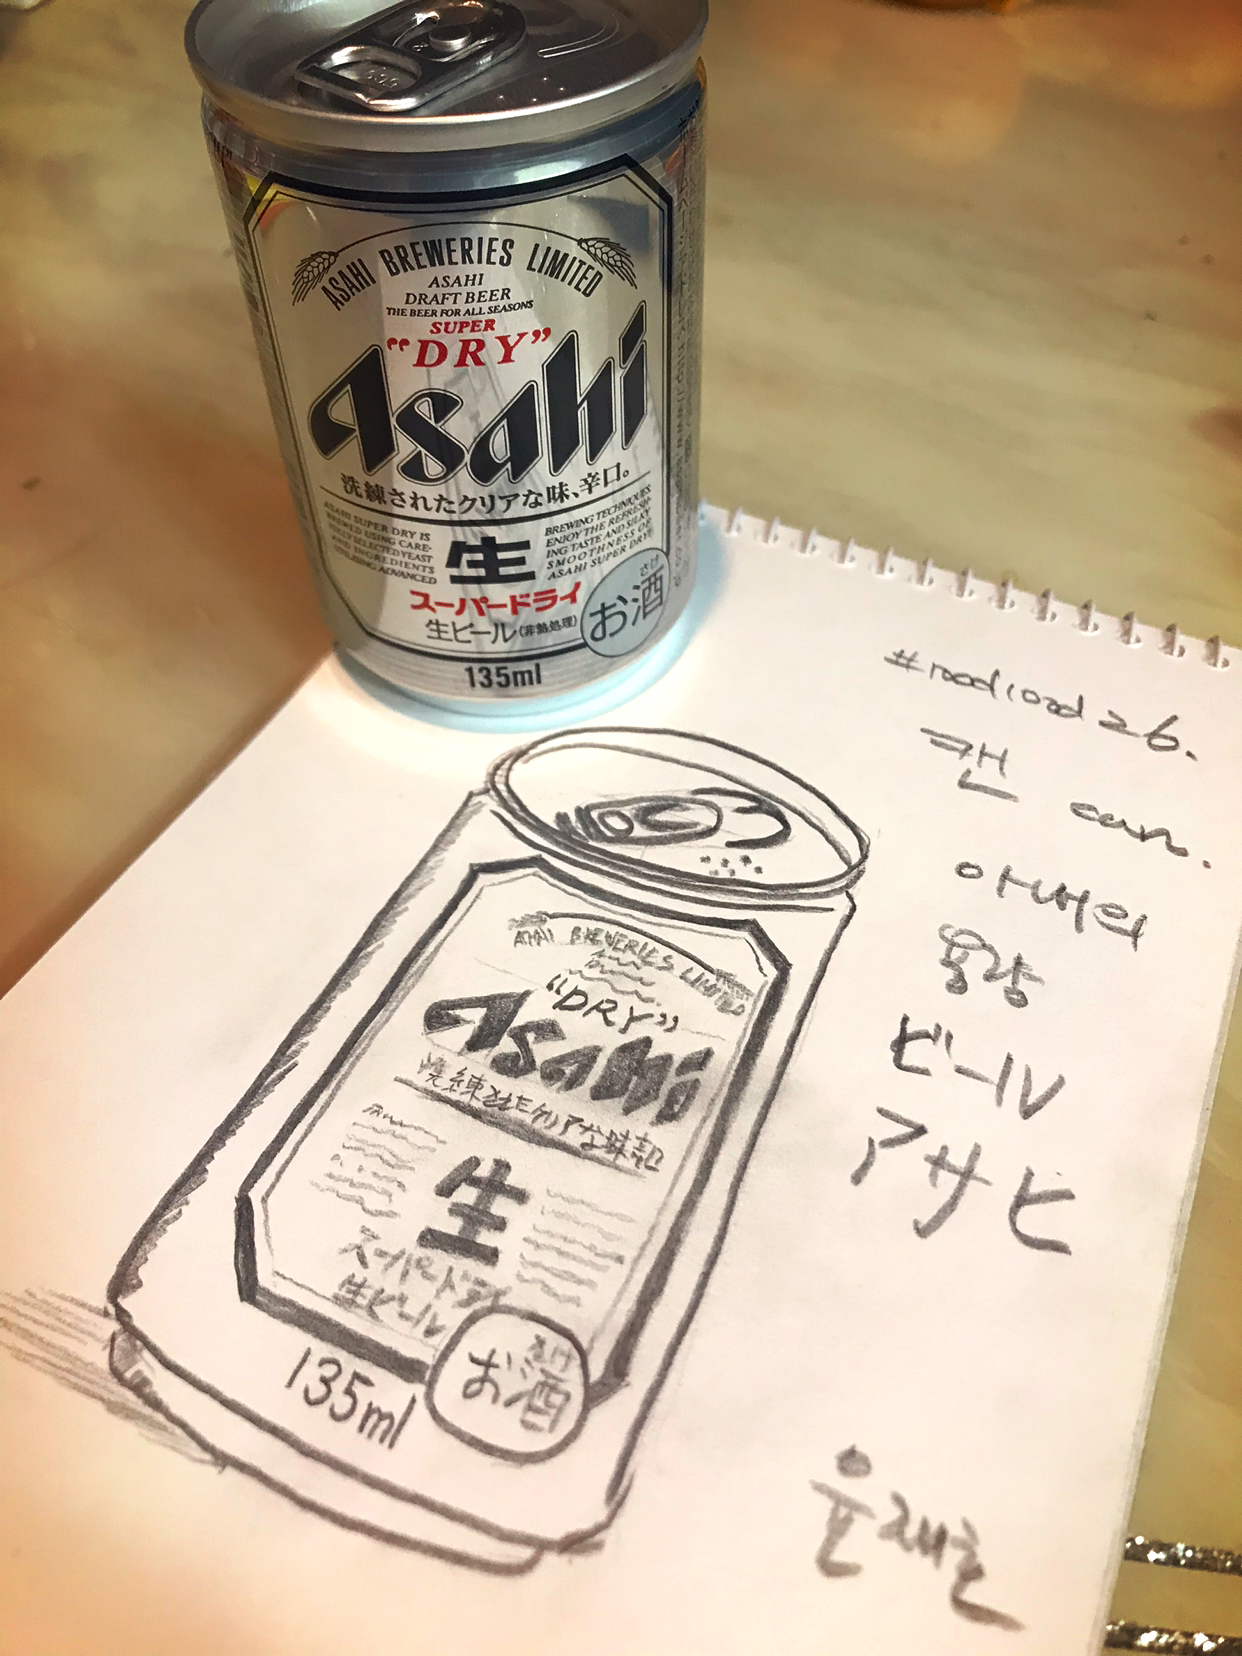 ASAHI BREWERIES LIMITED
ASAHI
DRAFT BEER
THE BEER FOR ALL SEASONS
SUPER
“DRY”
Asahi
洗練されたクリアな味、辛口。
ASAHI SUPER DRY IS
BREWED USING CARE-
FULLY SELECTED YEAST
AND INGREDIENTS
UTILISING ADVANCED
BREWING TECHNIQUES
ENJOY THE REFRESH-
ING TASTE AND SILKY
SMOOTHNESS OF
ASAHI SUPER DRY.
生
スーパードライ
生ビール(非熱処理)
さけ
お酒
135ml
캔 can.
용량
ビール
アサヒ
ASAHI BREWERIES LIMITED
“DRY”
Asahi
生
スーパードライ
生ビール
さけ
お酒
135ml
윤재호